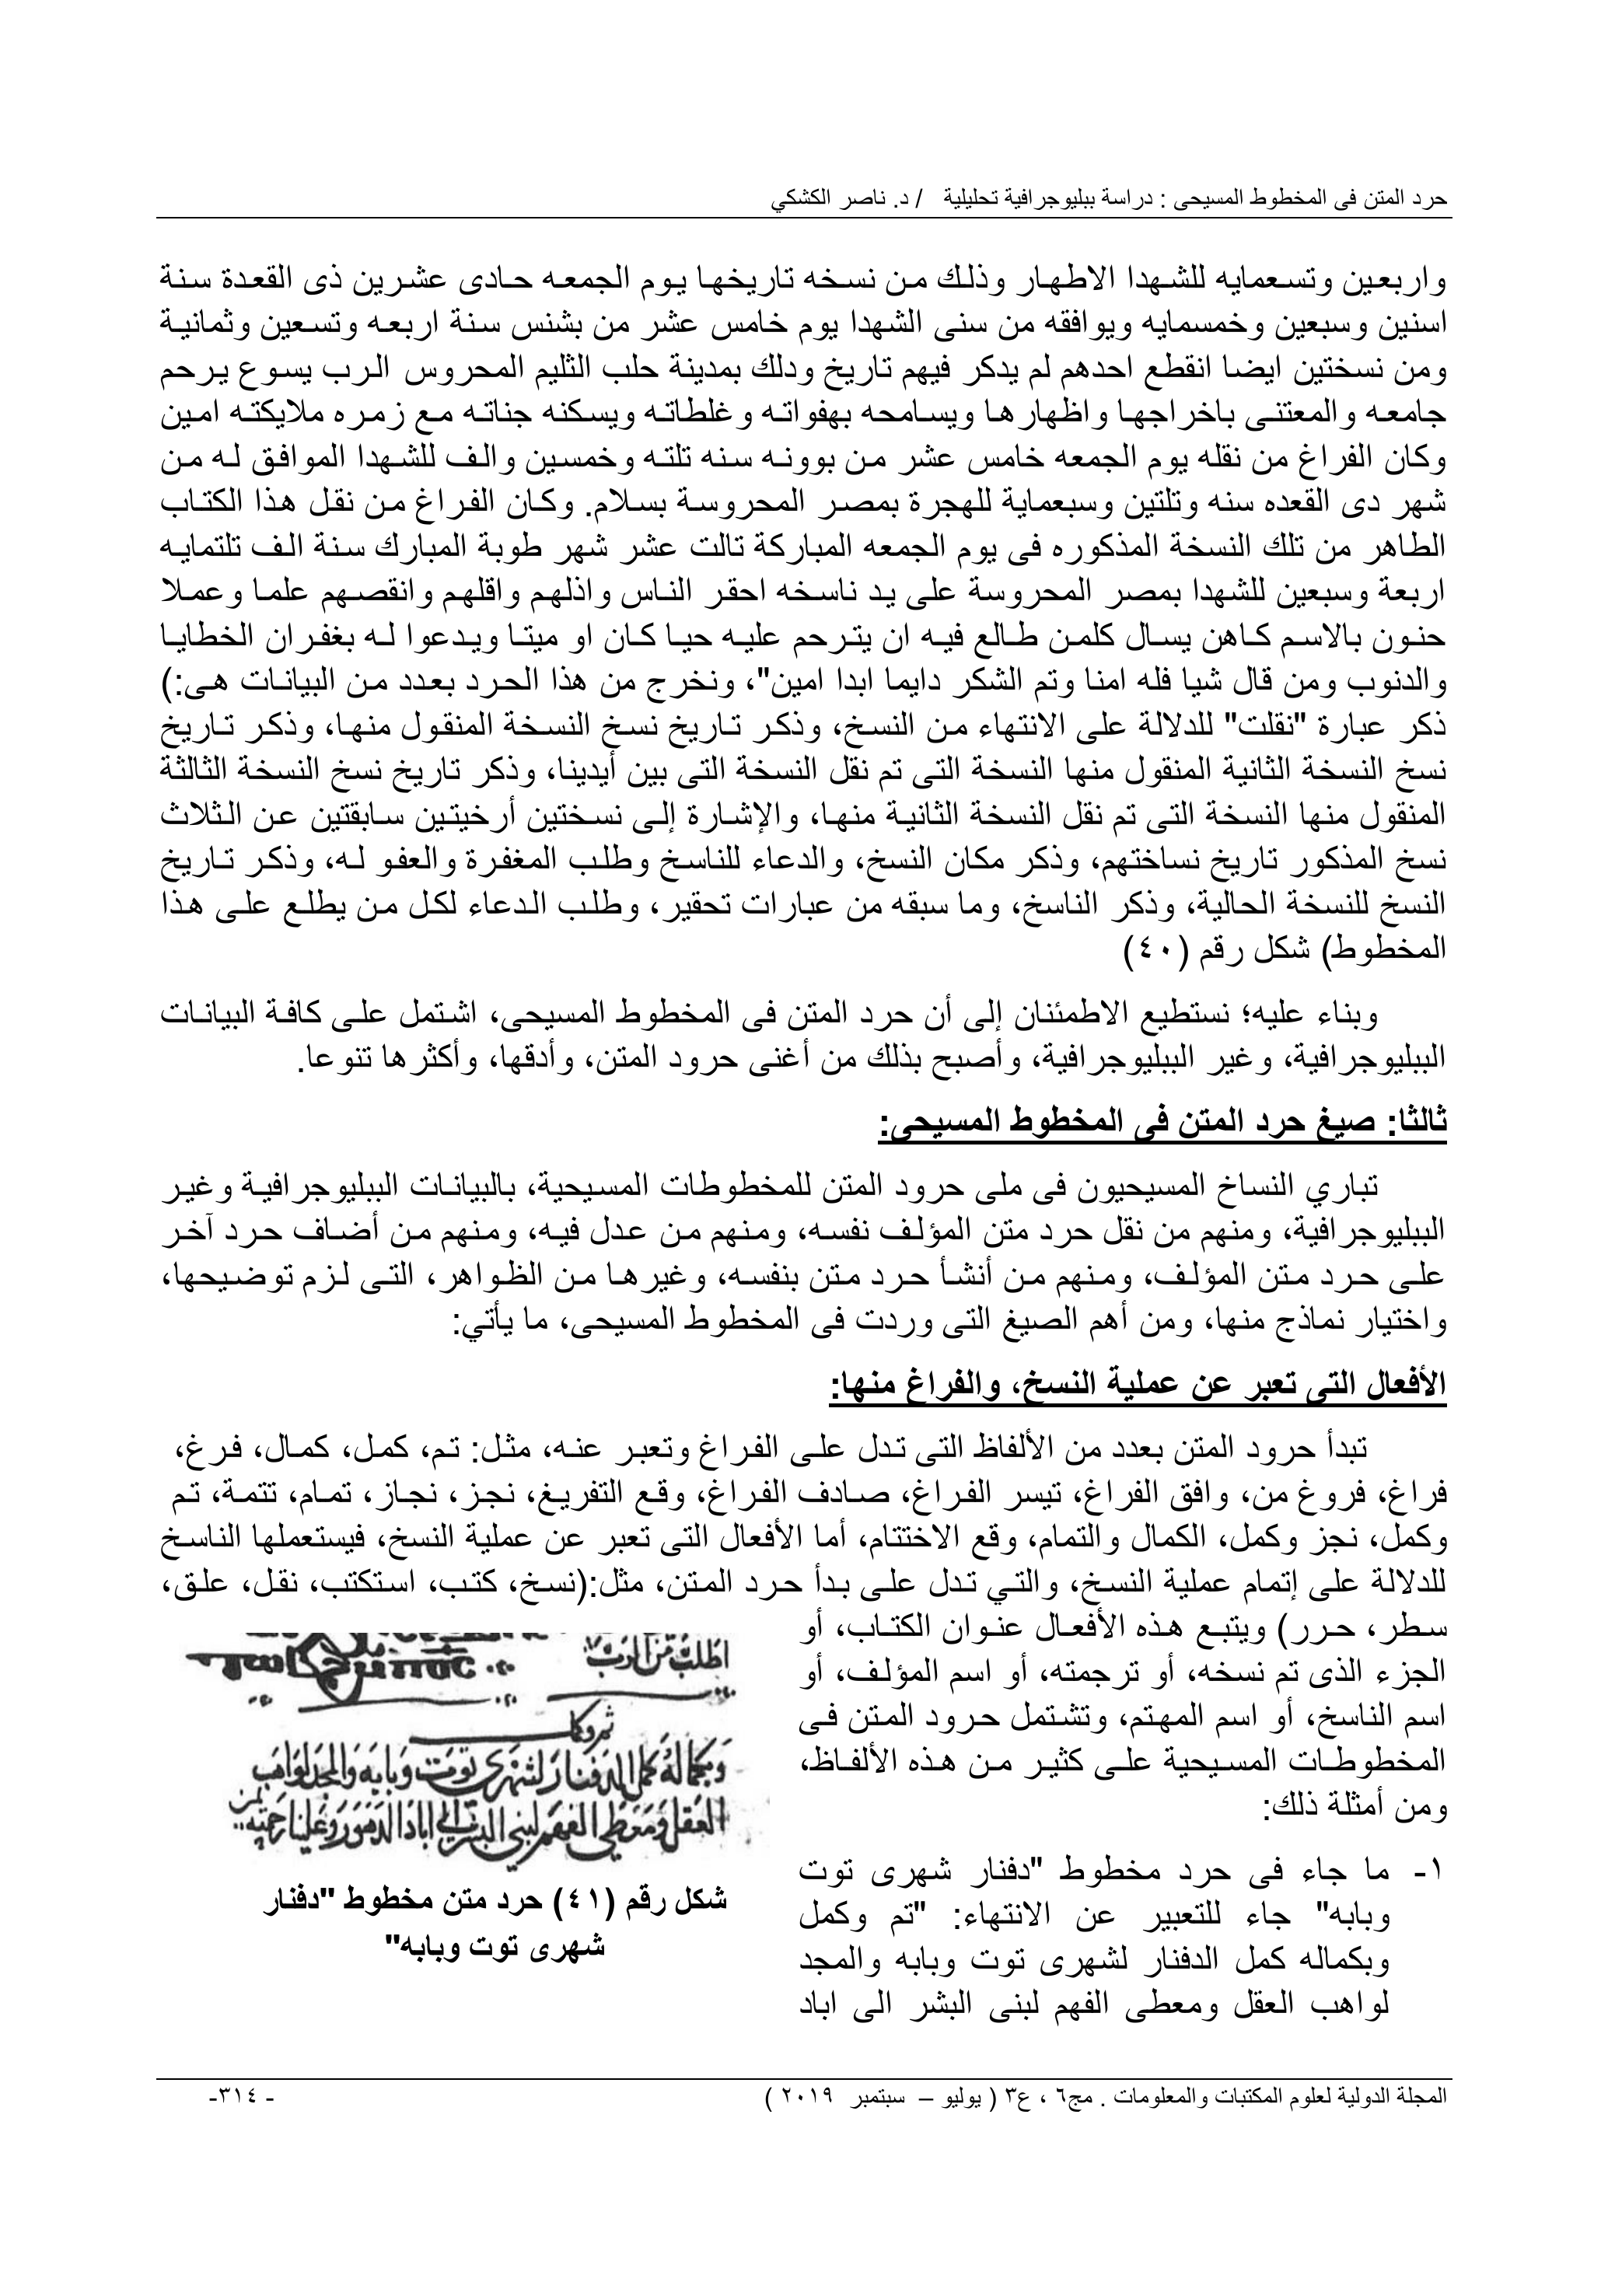 حرد المتن فى المخطوط المسيحى : دراسة ببليوجرافية تحليلية / د. ناصر الكشكي
واربعين وتسعمايه للشهدا الاطهار وذلك من نسخه تاريخها يوم الجمعه حادى عشرين ذى القعدة سنة
اسنين وسبعين وخمسمايه ويوافقه من سنى الشهدا يوم خامس عشر من بشنس سنة اربعه وتسعين وثمانية
ومن نسختين ايضا انقطع احدهم لم يدكر فيهم تاريخ ودلك بمدينة حلب الثليم المحروس الرب يسوع يرحم
جامعه والمعتنى باخراجها واظهارها ويسامحه بهفواته وغلطاته ويسكنه جناته مع زمره ملايكته امين
وكان الفراغ من نقله يوم الجمعه خامس عشر من بوونه سنه تلته وخمسين والف للشهدا الموافق له من
شهر دى القعده سنه وتلتين وسبعماية للهجرة بمصر المحروسة بسلام. وكان الفراغ من نقل هذا الكتاب
الطاهر من تلك النسخة المذكوره فى يوم الجمعه المباركة تالت عشر شهر طوبة المبارك سنة الف تلتمايه
اربعة وسبعين للشهدا بمصر المحروسة على يد ناسخه احقر الناس واذلهم واقلهم وانقصهم علما وعملا
حنون بالاسم كاهن يسال كلمن طالع فيه ان يترحم عليه حيا كان او ميتا ويدعوا له بغفران الخطايا
والدنوب ومن قال شيا فله امنا وتم الشكر دايما ابدا امين"، ونخرج من هذا الحرد بعدد من البيانات هى:)
ذكر عبارة "نقلت" للدلالة على الانتهاء من النسخ، وذكر تاريخ نسخ النسخة المنقول منها، وذكر تاريخ
نسخ النسخة الثانية المنقول منها النسخة التى تم نقل النسخة التى بين أيدينا، وذكر تاريخ نسخ النسخة الثالثة
المنقول منها النسخة التى تم نقل النسخة الثانية منها، والإشارة إلى نسختين أرخيتين سابقتين عن الثلاث
نسخ المذكور تاريخ نساختهم، وذكر مكان النسخ، والدعاء للناسخ وطلب المغفرة والعفو له، وذكر تاريخ
النسخ للنسخة الحالية، وذكر الناسخ، وما سبقه من عبارات تحقير، وطلب الدعاء لكل من يطلع على هذا
المخطوط) شكل رقم (٤٠)
وبناء عليه؛ نستطيع الاطمئنان إلى أن حرد المتن فى المخطوط المسيحى، اشتمل على كافة البيانات
الببليوجرافية، وغير الببليوجرافية، وأصبح بذلك من أغنى حرود المتن، وأدقها، وأكثرها تنوعا.
ثالثا: صيغ حرد المتن فى المخطوط المسيحى:
تباري النساخ المسيحيون فى ملى حرود المتن للمخطوطات المسيحية، بالبيانات الببليوجرافية وغير
الببليوجرافية، ومنهم من نقل حرد متن المؤلف نفسه، ومنهم من عدل فيه، ومنهم من أضاف حرد آخر
على حرد متن المؤلف، ومنهم من أنشأ حرد متن بنفسه، وغيرها من الظواهر، التى لزم توضيحها،
واختيار نماذج منها، ومن أهم الصيغ التى وردت فى المخطوط المسيحى، ما يأتي:
الأفعال التى تعبر عن عملية النسخ، والفراغ منها:
تبدأ حرود المتن بعدد من الألفاظ التى تدل على الفراغ وتعبر عنه، مثل: تم، كمل، كمال، فرغ،
فراغ، فروغ من، وافق الفراغ، تيسر الفراغ، صادف الفراغ، وقع التفريغ، نجز، نجاز، تمام، تتمة، تم
وكمل، نجز وكمل، الكمال والتمام، وقع الاختتام، أما الأفعال التى تعبر عن عملية النسخ، فيستعملها الناسخ
للدلالة على إتمام عملية النسخ، والتي تدل على بدأ حرد المتن، مثل:(نسخ، كتب، استكتب، نقل، علق،
سطر، حرر) ويتبع هذه الأفعال عنوان الكتاب، أو
الجزء الذى تم نسخه، أو ترجمته، أو اسم المؤلف، أو
اسم الناسخ، أو اسم المهتم، وتشتمل حرود المتن فى
المخطوطات المسيحية على كثير من هذه الألفاظ،
ومن أمثلة ذلك:
١- ما جاء فى حرد مخطوط "دفنار شهرى توت
وبابه" جاء للتعبير عن الانتهاء: "تم وكمل
وبكماله كمل الدفنار لشهرى توت وبابه والمجد
لواهب العقل ومعطى الفهم لبنى البشر الى اباد
اطلب من الرب
وبكماله كمل الدفنار لشهرى توت وبابه والمجد لواهب
العقل ومعطي الفهم لبني البشر الي اباد الدهور وعلينا رحمته
شكل رقم (٤١) حرد متن مخطوط "دفنار
شهرى توت وبابه"
المجلة الدولية لعلوم المكتبات والمعلومات . مج٦ ، ع٣ ( يوليو – سبتمبر ٢٠١٩ )
- ٣١٤-